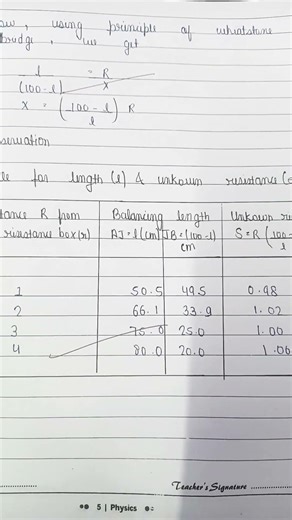 using principle of wheatstone
bridge, we get
l = R
(100-l) X
X = (100-l) R
l
for length (l) & unkown resistance
R from Balancing length Unkown
resistance box(r) AJ=l(cm) JB=(100-l) S=R(100-
cm l
1 50.5 49.5 0.98
2 66.1 33.9 1.02
3 75.0 25.0 1.00
4 80.0 20.0 1.00
Teacher's Signature
5 | Physics